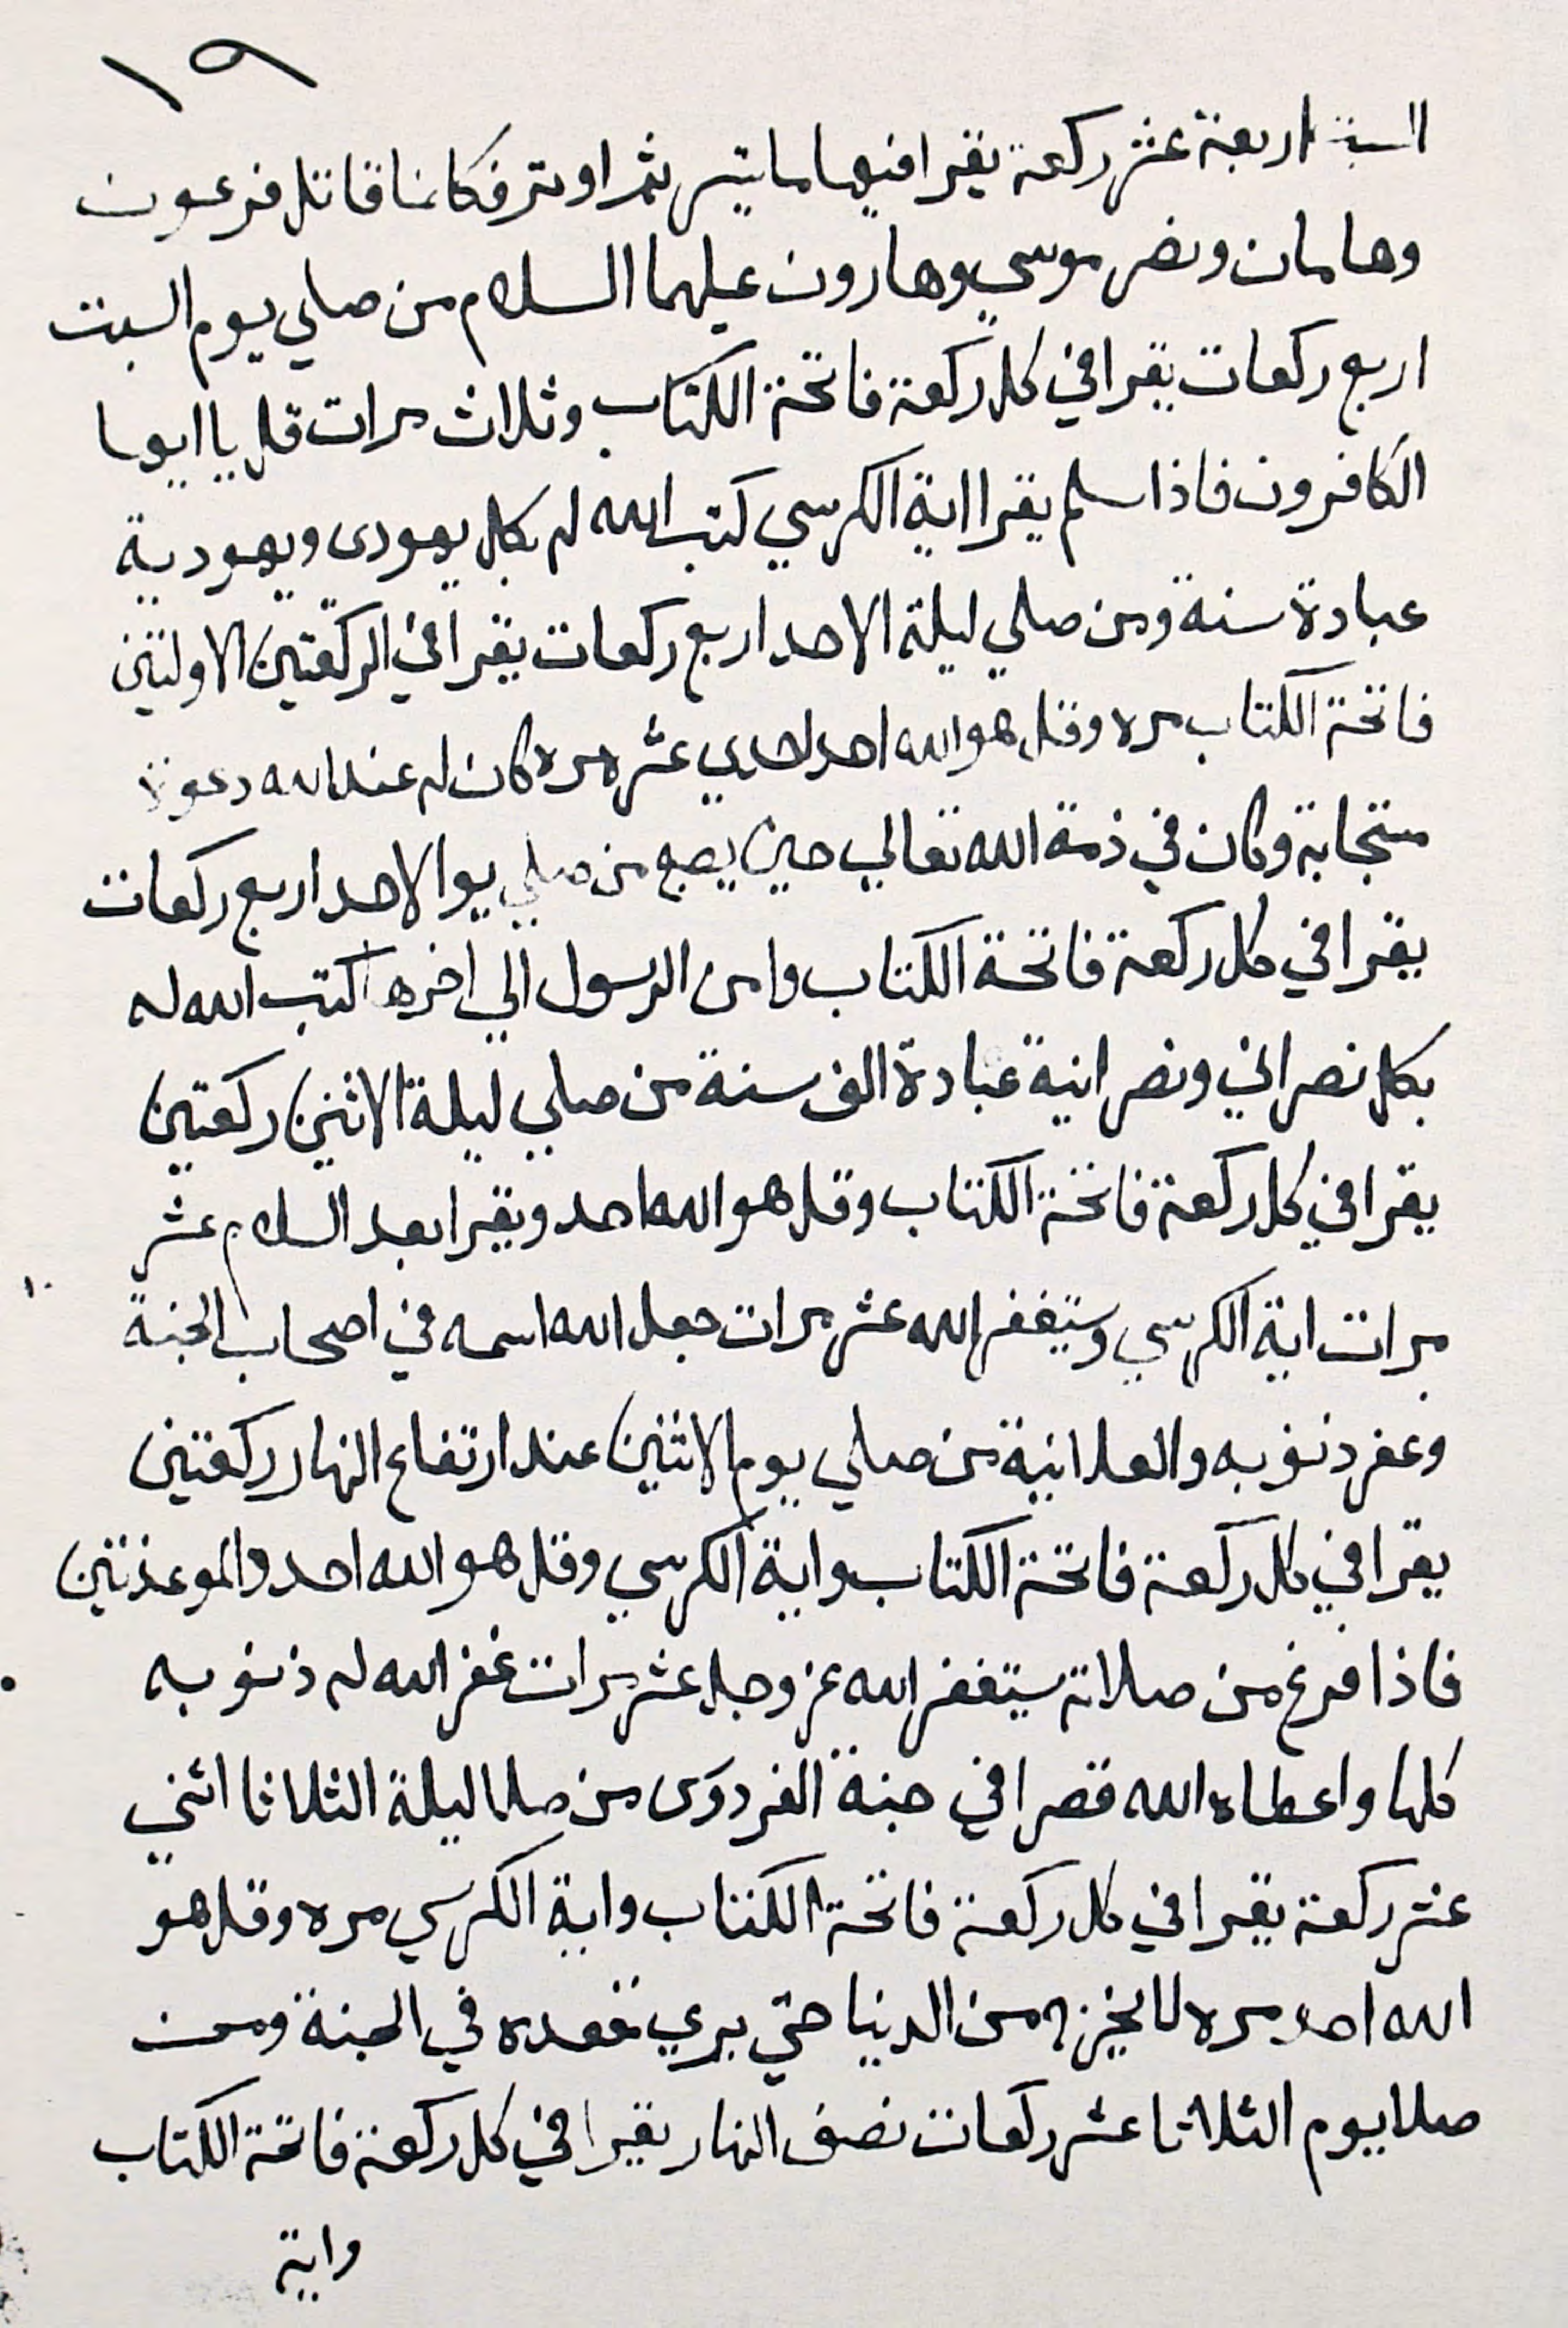 ١٩
السبت اربعة عشر ركعة يقرا فيها ما تيسر ثم اوتر فكانما قاتل فرعون
وهامان ونصر موسي وهارون عليهما السلام من صلي يوم السبت
اربع ركعات يقرا في كل ركعة فاتحة الكتاب وثلاث مرات قل يا ايها
الكافرون فاذا سلم يقرا اية الكرسي كتب الله له بكل يهودى ويهودية
عبادة سنة ومن صلي ليلة الاحد اربع ركعات يقرا في الركعتين الاولتين
فاتحة الكتاب مره وقل هو الله احد احدي عشره مره كان له عند الله دعوة
متجابة وكان في ذمة الله تعالي حين يصبح من صلي يوا الاحد اربع ركعات
يقرا في كل ركعة فاتحة الكتاب وامن الرسول الي اخرها كتب الله له
بكل نصراني ونصرانية عبادة الف سنة من صلي ليلة الاثنين ركعتين
يقرا في كل ركعة فاتحة الكتاب وقل هو الله احد ويقرا بعد السلام عشر
مرات اية الكرسي وستيغفر الله عشر مرات جعل الله اسمه في اصحاب الجنة
١٠
وغفر ذنوبه والعلانية من صلي يوم الاثنين عند ارتفاع النهار ركعتين
يقرا في كل ركعة فاتحة الكتاب واية الكرسي وقل هو الله احد والموعذتين
فاذا فرغ من صلاته ستيغفر الله عز وجل عشر مرات غفر الله له ذنوبه
كلها واعطاه الله قصرا في جنة الفردوس من صلا ليلة الثلاثا اثني
عشر ركعة يقرا في كل ركعة فاتحة الكتاب واية الكرسي مره وقل هو
الله احد مره لا يخرج من الدنيا حتي يري مقعده في الجنة ومن
صلا يوم الثلاثا عشر ركعات نصف النهار يقرا في كل ركعة فاتحة الكتاب
واية